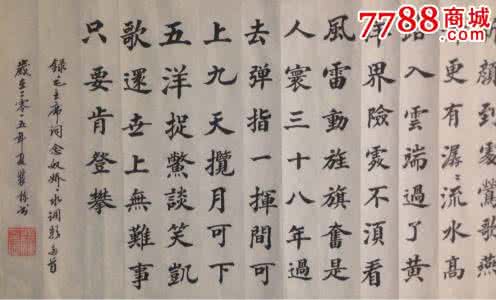 7788商城
.com
新顏到處鶯歌燕
舞更有潺〻流水高
路入雲端過了黃
洋界險處不須看
風雷動旌旗奮是
人寰三十八年過
去彈指一揮間可
上九天攬月可下
五洋捉鱉談笑凱
歌還世上無難事
只要肯登攀
錄毛主席词念奴娇·水调歌首
歲在二〇一五年夏